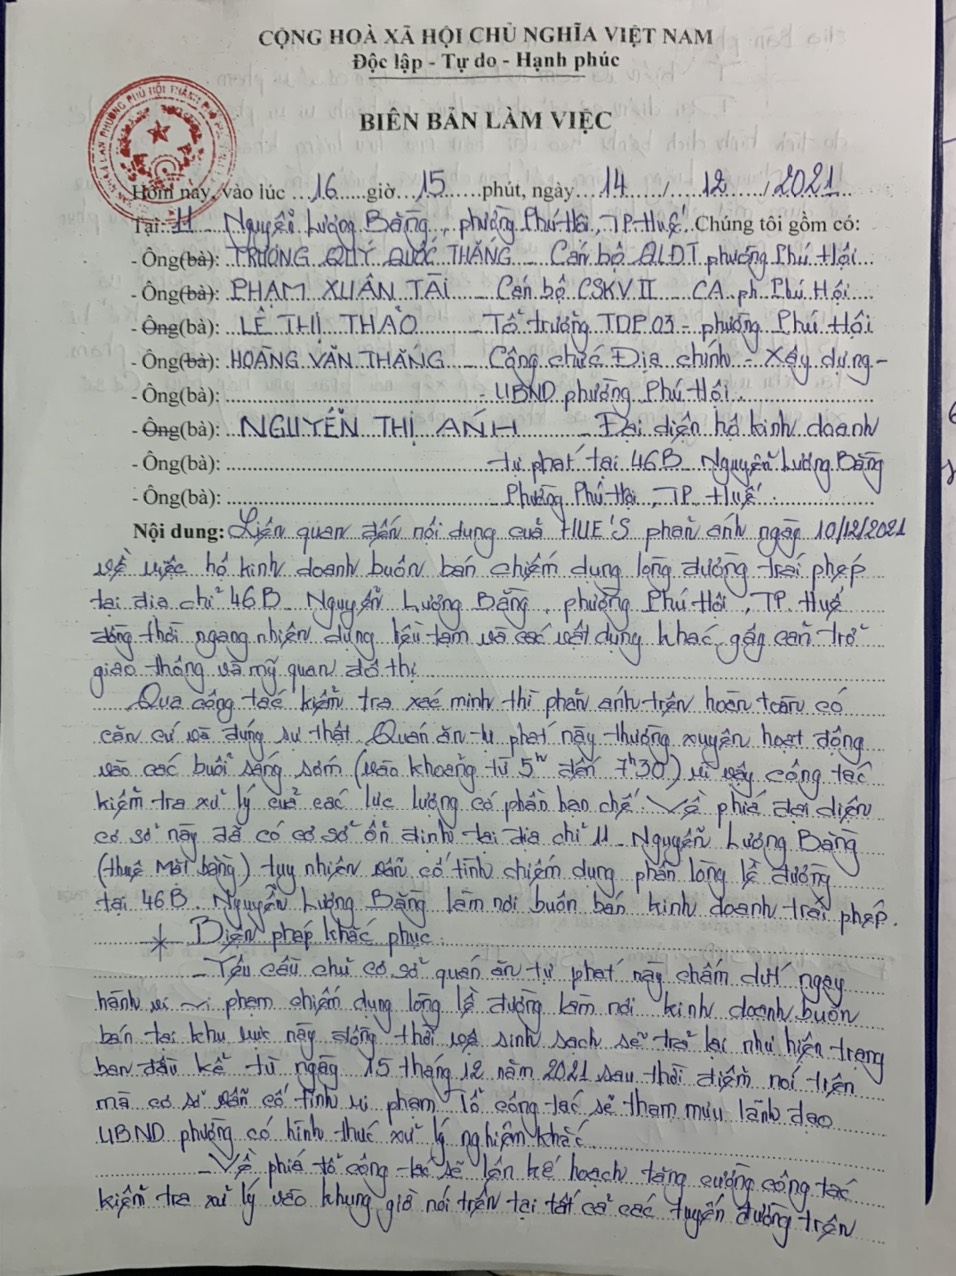 CỘNG HOÀ XÃ HỘI CHỦ NGHĨA VIỆT NAM
Độc lập - Tự do - Hạnh phúc
BIÊN BẢN LÀM VIỆC
Hôm nay, vào lúc 16 giờ 15 phút, ngày 14 / 12 / 2021
Tại: 11 Nguyễn Lương Bằng, phường Phú Hội, TP Huế. Chúng tôi gồm có:
- Ông(bà): TRƯƠNG QUÝ QUỐC THẮNG - Cán bộ QLĐT phường Phú Hội
- Ông(bà): PHẠM XUÂN TÀI - Cán bộ CSKV II - CA ph. Phú Hội
- Ông(bà): LÊ THỊ THẢO - Tổ trưởng TDP 03 - phường Phú Hội
- Ông(bà): HOÀNG VĂN THẮNG - Công chức Địa chính - Xây dựng -
- Ông(bà): - UBND phường Phú Hội.
- Ông(bà): NGUYỄN THỊ ÁNH - Đại diện hộ kinh doanh
- Ông(bà): tự phát tại 46B Nguyễn Lương Bằng
- Ông(bà): Phường Phú Hội, TP. Huế
Nội dung: Liên quan đến nội dung của HUE'S phản ánh ngày 10/12/2021
về việc hộ kinh doanh buôn bán chiếm dụng lòng đường trái phép
tại địa chỉ 46B Nguyễn Lương Bằng, phường Phú Hội, TP. Huế
đồng thời ngang nhiên dựng lều tạm và các vật dụng khác, gây cản trở
giao thông và mỹ quan đô thị.
Qua công tác kiểm tra xác minh thì phản ánh trên hoàn toàn có
căn cứ và đúng sự thật. Quán ăn tự phát này thường xuyên hoạt động
vào các buổi sáng sớm (vào khoảng từ 5h đến 7h30) vì vậy công tác
kiểm tra xử lý của các lực lượng có phần hạn chế. Về phía đại diện
cơ sở này đã có cơ sở ổn định tại địa chỉ 11 - Nguyễn Lương Bằng
(thuê Mặt bằng) tuy nhiên vẫn cố tình chiếm dụng phần lòng lề đường
tại 46B Nguyễn Lương Bằng làm nơi buôn bán kinh doanh trái phép.
* Biện pháp khắc phục:
- Yêu cầu chủ cơ sở quán ăn tự phát này chấm dứt ngay
hành vi vi phạm chiếm dụng lòng lề đường làm nơi kinh doanh buôn
bán tại khu vực này đồng thời vệ sinh sạch sẽ trả lại như hiện trạng
ban đầu kể từ ngày 15 tháng 12 năm 2021 sau thời điểm nói trên
mà cơ sở vẫn cố tình vi phạm Tổ công tác sẽ tham mưu lãnh đạo
UBND phường có hình thức xử lý nghiêm khắc
- Về phía tổ công tác sẽ lên kế hoạch tăng cường công tác
kiểm tra xử lý vào khung giờ nói trên tại tất cả các tuyến đường trên